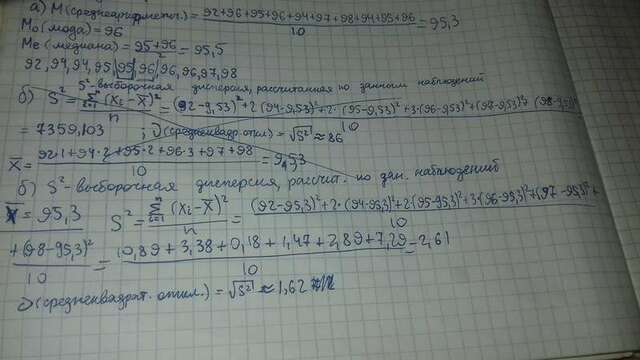 а) М (среднеарифметич.) = 92+96+95+96+94+97+98+94+95+96 / 10 = 95,3
Мо (мода) = 96
Ме (медиана) = 95+96 / 2 = 95,5
92, 94, 94, 95, 95, 96, 96, 96, 97, 98
S² - выборочная дисперсия, рассчитанная по данным наблюдений
б) S² = Σ i=1 (Xi - X̅)² / n = (92-9,53)² + 2·(94-9,53)² + 2·(95-9,53)² + 3·(96-9,53)² + (97-9,53)² (98-9,53)² / 10
= 7359,103 ; (среднеквадр. откл) = √S² ≈ 86
X̅ = 92·1+94·2+95·2+96·3+97+98 / 10 = 9,53
б) S² - выборочная дисперсия, рассчит. по дан. наблюдений
X̅ = 95,3 S² = Σ i=1 (Xi - X̅)² / n = (92-95,3)² + 2·(94-95,3)² + 2·(95-95,3)² + 3·(96-95,3)² + (97-95,3)² +
+ (98-95,3)² / 10 = 10,89 + 3,38 + 0,18 + 1,47 + 2,89 + 7,29 / 10 = 2,61
(среднеквадрат. откл.) = √S² ≈ 1,62